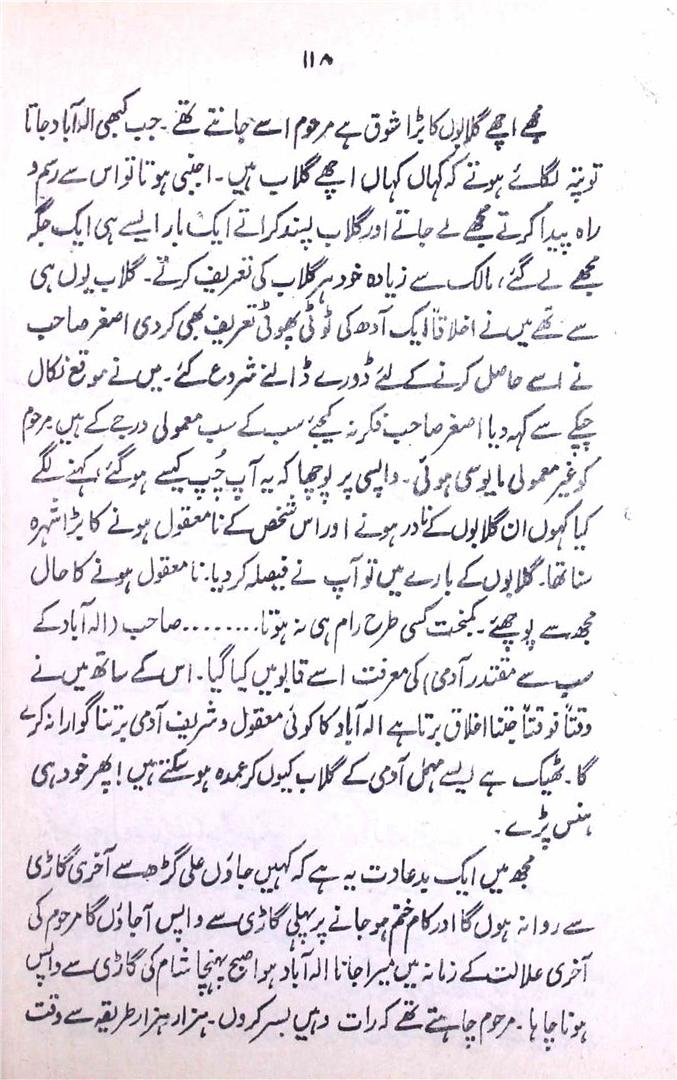 ۱۱۸
مجھے اچھے گلابوں کا بڑا شوق ہے مرحوم اسے جانتے تھے۔ جب کبھی الہ آباد جاتا
تو پتہ لگائے ہوتے کہ کہاں کہاں اچھے گلاب ہیں۔ اجنبی ہوتا تو اس سے رسم و
راہ پیدا کرتے مجھے لے جاتے اور گلاب پسند کراتے ایک بار ایسے ہی ایک جگہ
مجھے لے گئے، مالک سے زیادہ خود ہر گلاب کی تعریف کرتے۔ گلاب یوں ہی
سے تھے میں نے اخلاقاً ایک آدھ کی ٹوٹی پھوٹی تعریف بھی کر دی اصغر صاحب
نے اسے حاصل کرنے کے لئے ڈورے ڈالنے شروع کئے۔ میں نے موقع نکال
چپکے سے کہہ دیا اصغر صاحب فکر نہ کیجئے سب کے سب معمولی درجے کے ہیں۔ مرحوم
کو غیر معمولی مایوسی ہوئی۔ واپسی پر پوچھا کہ یہ آپ چُپ کیسے ہو گئے، کہنے لگے
کیا کہوں ان گلابوں کے نادر ہونے اور اس شخص کے نامعقول ہونے کا بڑا شہرہ
سنا تھا۔ گلابوں کے بارے میں تو آپ نے فیصلہ کر دیا۔ نامعقول ہونے کا حال
مجھ سے پوچھئے۔ کمبخت کسی طرح رام ہی نہ ہوتا........ صاحب (الہ آباد کے
سب سے مقتدر آدمی) کی معرفت اسے قابو میں کیا گیا۔ اس کے ساتھ میں نے
وقتاً فوقتاً جتنا اخلاق برتا ہے الہ آباد کا کوئی معقول و شریف آدمی برتنا گوارا نہ کرے
گا۔ ٹھیک ہے ایسے مہمل آدمی کے گلاب کیوں کر عمدہ ہو سکتے ہیں! پھر خود ہی
ہنس پڑے۔
مجھ میں ایک بد عادت یہ ہے کہ کہیں جاؤں علی گڑھ سے آخری گاڑی
سے روانہ ہوں گا اور کام ختم ہو جانے پر پہلی گاڑی سے واپس آجاؤں گا مرحوم کی
آخری علالت کے زمانہ میں میرا جانا الہ آباد ہوا صبح پہنچا شام کی گاڑی سے واپس
ہونا چاہا۔ مرحوم چاہتے تھے کہ رات وہیں بسر کروں۔ ہزار ہزار طریقہ سے وقت